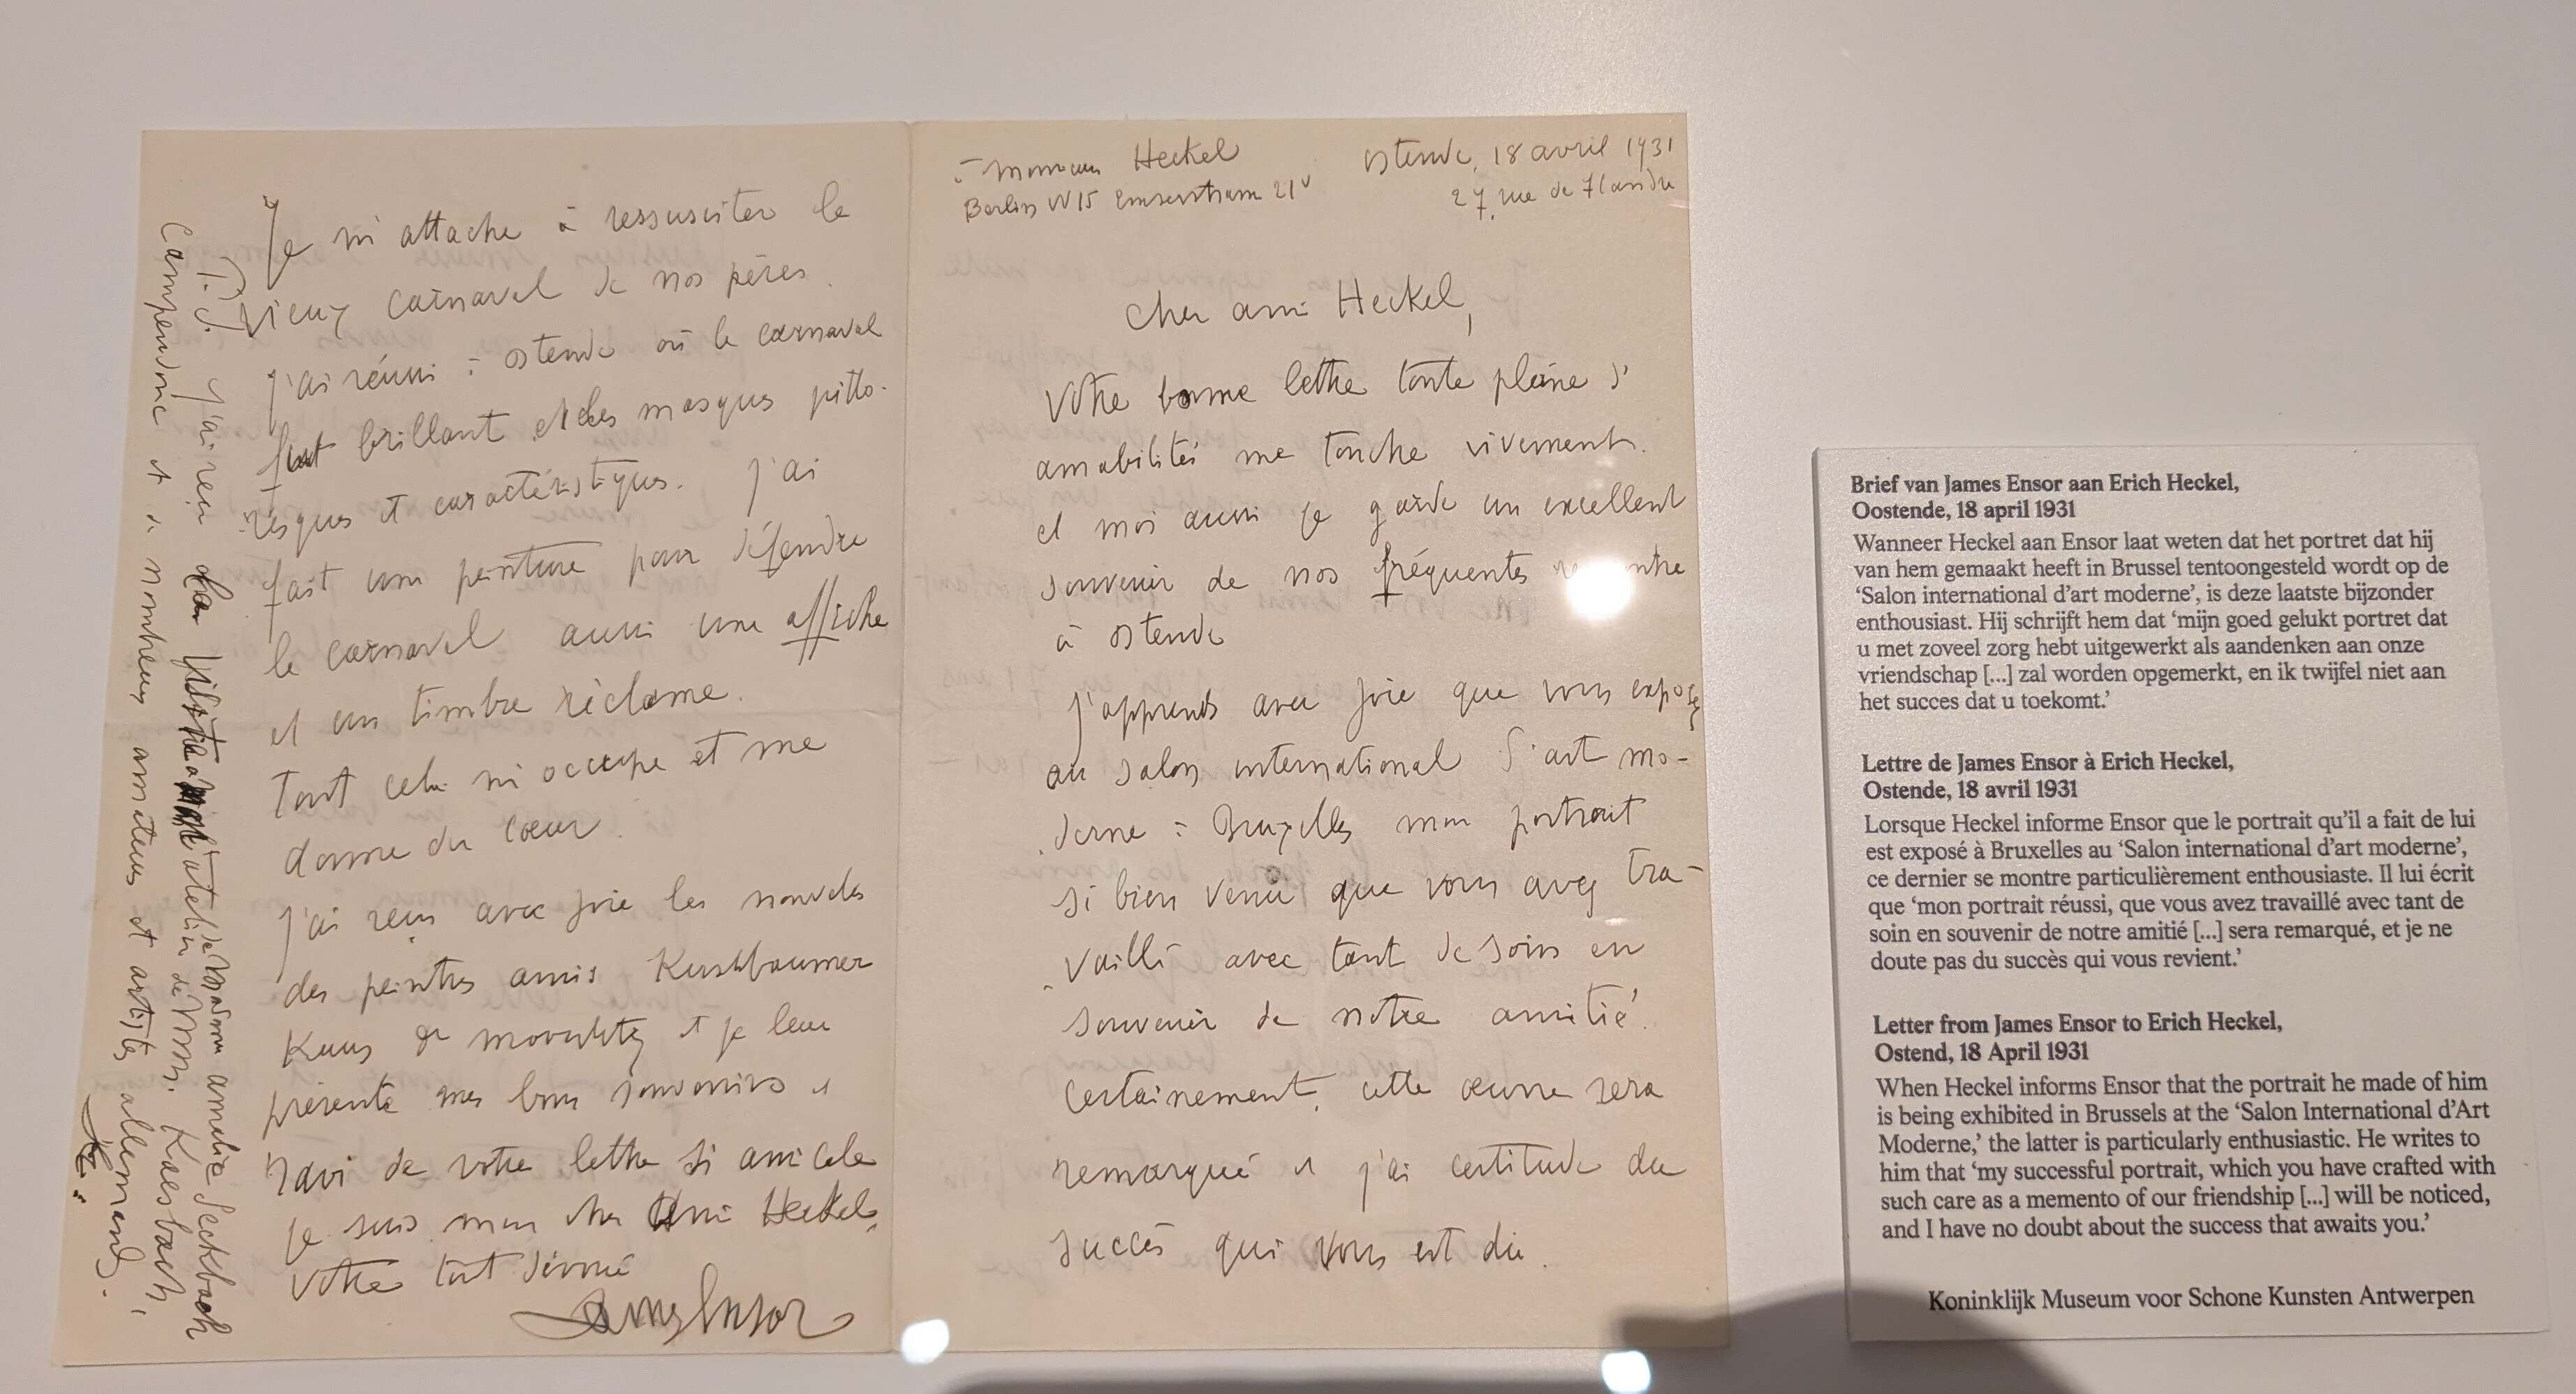 à Monsieur Heckel
Berlin W15 Emserstrasse 21
Ostende, 18 avril 1931
27, rue de Flandre
Cher ami Heckel,
Votre bonne lettre toute pleine d'
amabilités me touche vivement.
et moi aussi je garde un excellent
souvenir de nos fréquentes
à Ostende
J'apprends avec joie que vous exposez
au salon international d'art mo-
derne à Bruxelles mon portrait
si bien venu que vous avez tra-
vaillé avec tant de soin en
souvenir de notre amitié.
Certainement, cette œuvre sera
remarqué et j'ai certitude du
succès qui vous est dû.
Je m'attache à ressusciter le
vieux carnaval de nos pères.
J'ai réussi à Ostende où le carnaval
fut brillant et les masques pitto-
resques et caractéristiques. J'ai
fait une peinture pour défendre
le carnaval aussi une affiche
et un timbre réclame.
Tout cela m'occupe et me
donne du cœur.
J'ai reçu avec joie les nouvelles
des peintres amis Kerschbaumer
Kaus et et je leur
présente mes bons souvenirs et
ravi de votre lettre si amicale
je suis mon cher Ami Heckel,
Votre tout dévoué
James Ensor
P.S. j'ai reçu visite atelier de Madame amélie Seckbach
de Mrs. Kaesbach,
Campendonc et de nombreux amateurs et artistes allemands.
Brief van James Ensor aan Erich Heckel,
Oostende, 18 april 1931
Wanneer Heckel aan Ensor laat weten dat het portret dat hij
van hem gemaakt heeft in Brussel tentoongesteld wordt op de
‘Salon international d’art moderne’, is deze laatste bijzonder
enthousiast. Hij schrijft hem dat ‘mijn goed gelukt portret dat
u met zoveel zorg hebt uitgewerkt als aandenken aan onze
vriendschap [...] zal worden opgemerkt, en ik twijfel niet aan
het succes dat u toekomt.’
Lettre de James Ensor à Erich Heckel,
Ostende, 18 avril 1931
Lorsque Heckel informe Ensor que le portrait qu’il a fait de lui
est exposé à Bruxelles au ‘Salon international d’art moderne’,
ce dernier se montre particulièrement enthousiaste. Il lui écrit
que ‘mon portrait réussi, que vous avez travaillé avec tant de
soin en souvenir de notre amitié [...] sera remarqué, et je ne
doute pas du succès qui vous revient.’
Letter from James Ensor to Erich Heckel,
Ostend, 18 April 1931
When Heckel informs Ensor that the portrait he made of him
is being exhibited in Brussels at the ‘Salon International d’Art
Moderne,’ the latter is particularly enthusiastic. He writes to
him that ‘my successful portrait, which you have crafted with
such care as a memento of our friendship [...] will be noticed,
and I have no doubt about the success that awaits you.’
Koninklijk Museum voor Schone Kunsten Antwerpen